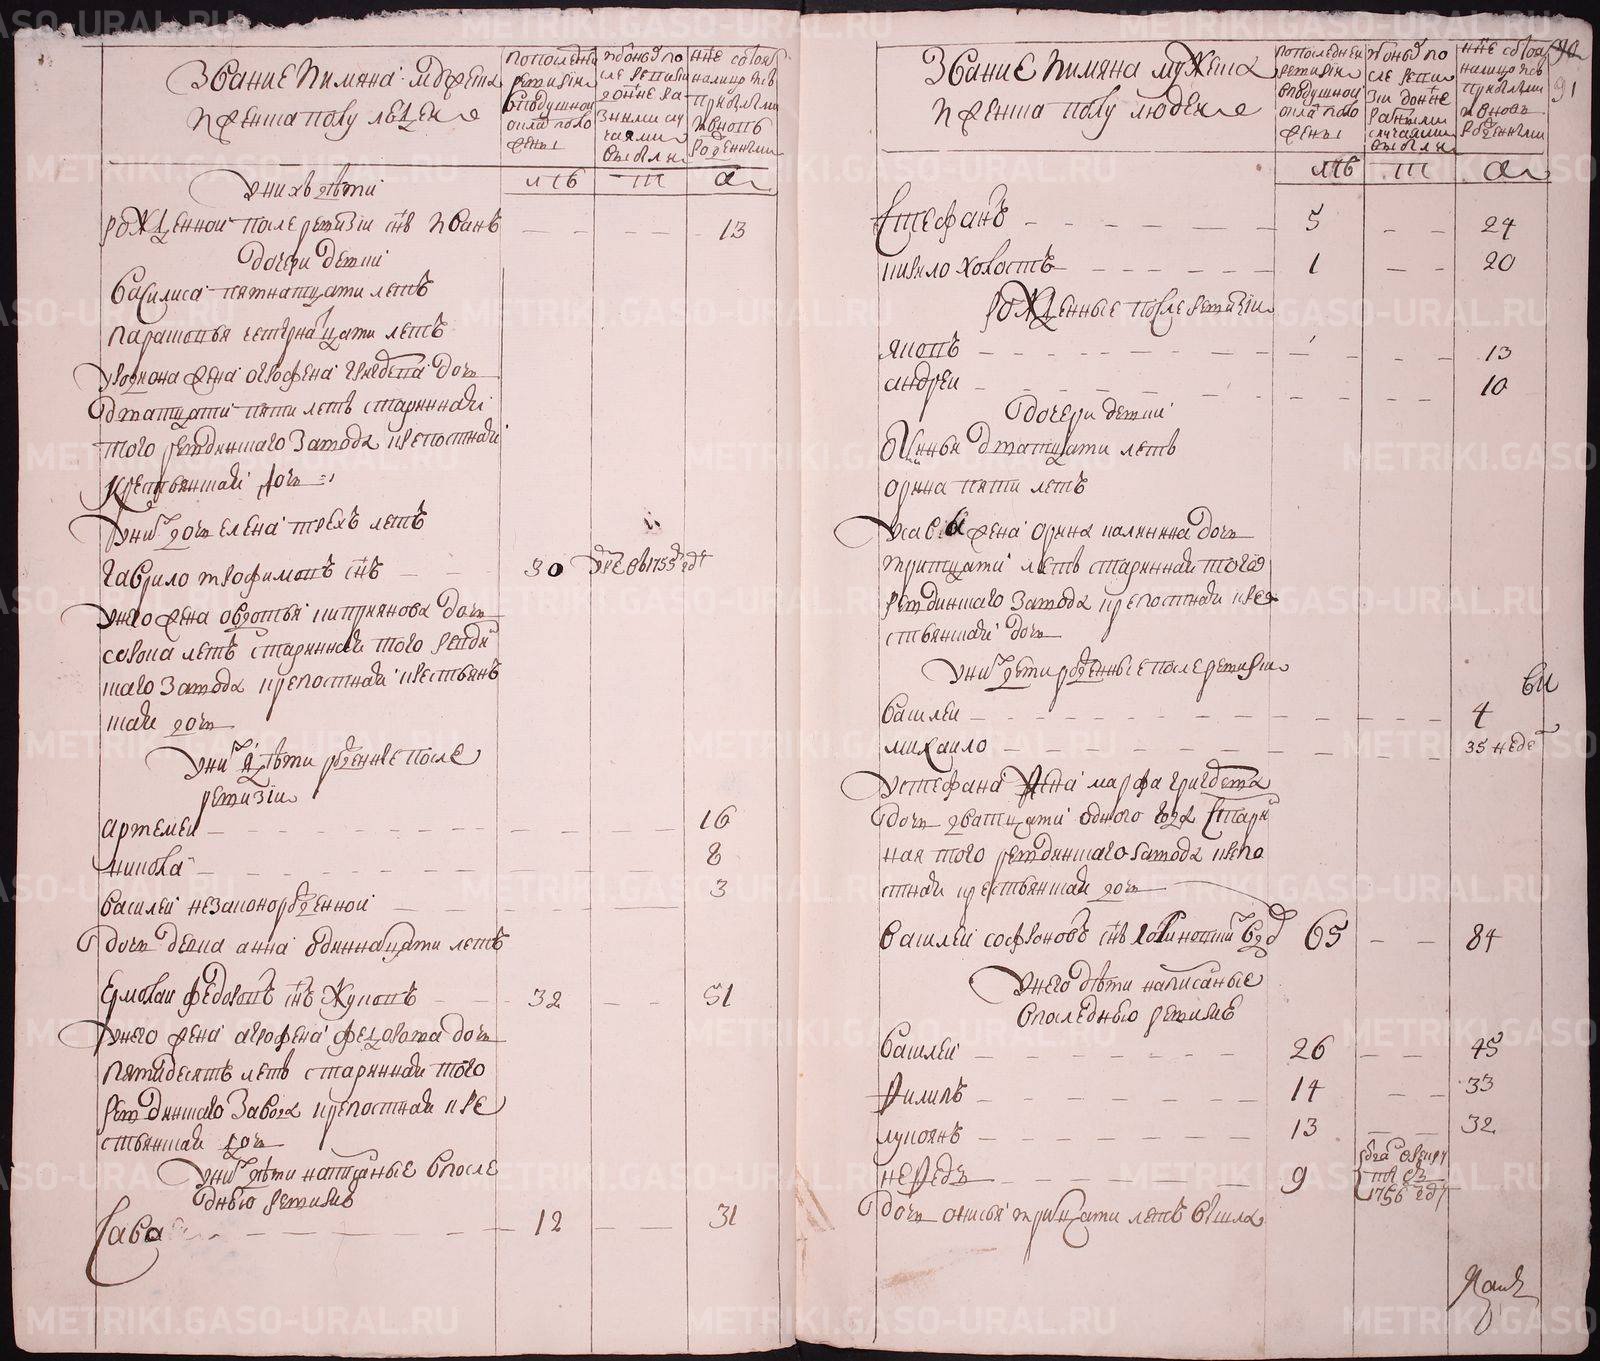 METRIKI.GASO-URAL.RU
Звание имяна мужеска
и женска полу людеи
по последнеи
ревизии
в подушнои
оклад поло
жены
из оных по
сле ревизи
до ныне ра
зными слу
чаями
выбыли
ныне состои
налицо ис
прибылыми
и вновь
рожденными
летъ
лета
У них дети
рожденнои после ревизии снъ Иванъ 13
дочери девки
Василиса пятнатцати летъ
Парасковья четырнатцати летъ
жена Агрофена дочь
дватцати пяти летъ стариннаи
того Ревдинскаго завода крепостнаи
крестьянскаи дочь
у них дочь Елена трехъ летъ
Гаврило Трофимовъ снъ 30 умре в 1755 году
у него жена Авдотья Киприянова дочь
сорока летъ стариннаи того Ревди
нскаго завода крепостнаи крестьянъ
скаи дочь
у них дети рожденые после
ревизии
Артемеи 16
Никола 8
Василеи незаконорожденнои 3
дочь девка Анна одиннатцати летъ
Ермолаи Федоровъ снъ Жуковъ 32 51
у него жена Агрофена Федорова дочь
пятидесятъ летъ стариннаи того
Ревдинскаго завода крепостнаи кре
стьянскаи дочь
у них дети написаные в после
днюю ревизию
Сава 12 31
91
Звание имяна мужеска
и женска полу людеи
по последнеи
ревизии
в подушнои
оклад поло
жены
из оных по
сле реви
зии до ныне
разными
случаями
выбыли
ныне состои
налицо ис
прибылыми
и вновь
рожденными
летъ
лета
Стефанъ 5 24
Кирило холостъ 1 20
рожденные после ревизии
Яковъ 13
Андреи 10
дочери девки
дватцати летъ
Орина пяти летъ
у Савы жена Орина Калинина дочь
тритцати летъ стариннаи того
Ревдинскаго завода крепостнаи кре
стьянскаи дочь
у них дети рожденные после ревизии
Василеи 4
Михаило 35 неде
у Стефана жена Марфа дочь
дватцати одного года стари
ная того Ревдинскаго завода крепо
стнаи крестьянскаи дочь
Василеи Софроновъ снъ 65 84
у него дети написаные
в последнюю ревизию
Василеи 26 45
Филипъ 14 33
Лукоянъ 13 32
Нефедъ 9 отдан в рекру
ты в
1756 году
дочь тритцати летъ вышла